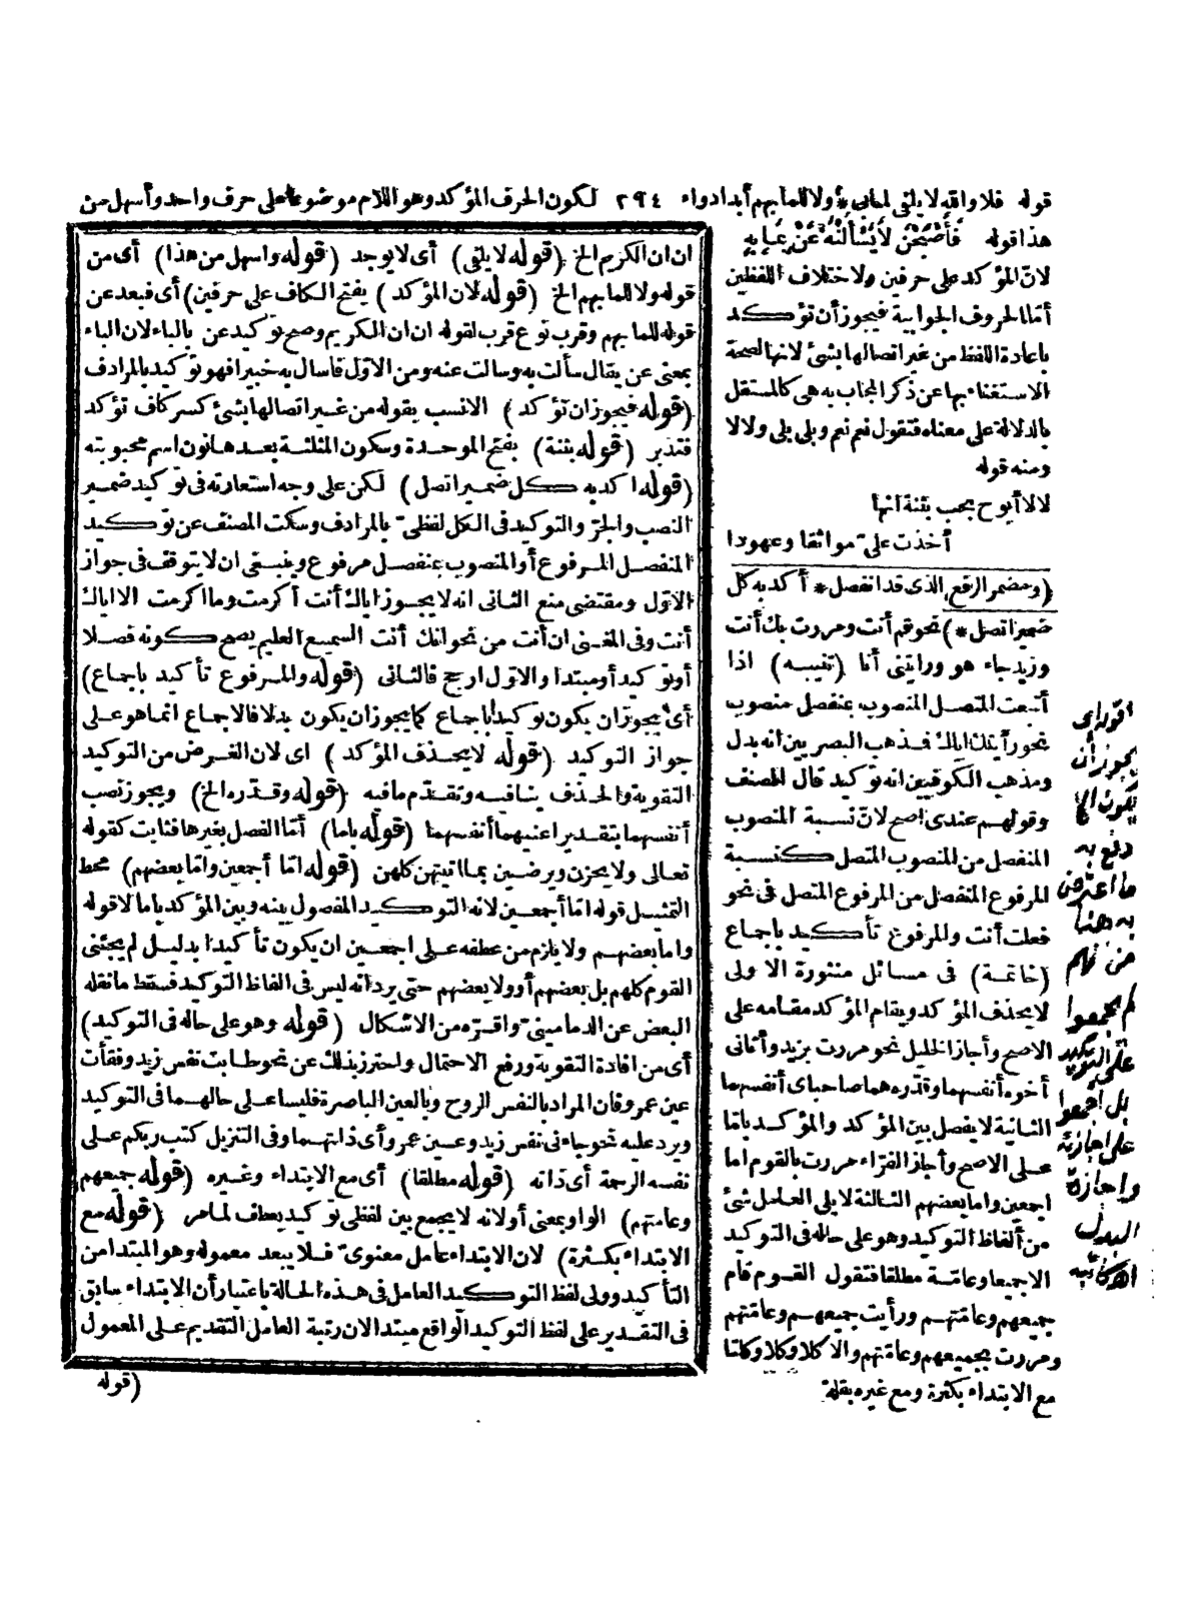 قوله فلا والله لا يلفى لما بى * ولا للما بهم أبدا دواء ٢٩٤ لكون الحرف المؤكد وهو اللام موضوعا على حرف واحد وأسهل من
هذا قوله فَأَصْبَحْنَ لَا يَسْأَلْنَهُ عَنْ بِمَا بِهِ
لان المؤكد على حرفين ولاختلاف اللفظين
أما الحروف الجوابية فيجوز أن تؤكد
باعادة اللفظ من غير اتصالها بشئ لانها لصحة
الاستغناء بها عن ذكر المجاب به هى كالمستقل
بالدلالة على معناه فتقول نعم نعم وبلى بلى ولا لا
ومنه قوله
لا لا أبوح بحب بثنة انها
أخذت علىّ مواثقا وعهودا
(ومضمر الرفع الذى قد انفصل * أكد به كل
ضمير اتصل *) نحو قم أنت ومررت بك أنت
وزيد جاء هو ورأيتنى أنا (تنبيه) اذا
أتبعت المتصل المنصوب بمنفصل منصوب
نحو رأيتك اياك فذهب البصريين انه بدل
ومذهب الكوفيين انه توكيد قال المصنف
وقولهم عندى اصح لان نسبة المنصوب
المنفصل من المنصوب المتصل كنسبة
المرفوع المنفصل من المرفوع المتصل فى نحو
فعلت أنت والمرفوع تأكيد باجماع
(خاتمة) فى مسائل منثورة الاولى
لا يحذف المؤكد ويقام المؤكد مقامه على
الاصح وأجاز الخليل نحو مررت بزيد وأتانى
أخوه أنفسهما وقدره هما صاحباى أنفسهما
الثانية لا يفصل بين المؤكد والمؤكد باما
على الاصح وأجاز الفراء مررت بالقوم اما
اجمعين واما بعضهم الثالثة لا يلى العامل شئ
من ألفاظ التوكيد وهو على حاله فى التوكيد
الا جميعا وعامة مطلقا فتقول القوم قام
جميعهم وعامتهم ورأيت جميعهم وعامتهم
ومررت بجميعهم وعامتهم والا كلا وكلا وكلتا
مع الابتداء بكثرة ومع غيره بقلة
ان ان الكريم الخ (قوله لا يلفى) أى لا يوجد (قوله واسهل من هذا) أى من
قوله ولا للما بهم الخ (قوله لان المؤكد) بفتح الكاف على حرفين) أى فبعد عن
قوله للما بهم وقرب نوع قرب لقوله ان ان الكريم وصح توكيد عن بالباء لان الباء
بمعنى عن يقال سألت به وسألت عنه ومن الاول فاسال به خبيرا فهو توكيد بالمرادف
(قوله فيجوز ان تؤكد) الانسب بقوله من غير اتصالها بشئ كسر كاف تؤكد
فتدبر (قوله بثنة) بفتح الموحدة وسكون المثلثة بعدها نون اسم محبوبته
(قوله اكد به كل ضمير اتصل) لكن على وجه استعارته فى توكيد ضمير
النصب والجر والتوكيد فى الكل لفظى بالمرادف وسكت المصنف عن توكيد
المنفصل المرفوع أو المنصوب بمنفصل مرفوع وينبغى ان لا يتوقف فى جواز
الاول ومقتضى منع الثانى انه لا يجوز اياك أنت أكرمت وما اكرمت الا اياك
أنت وفى المغنى ان أنت من نحو انك أنت السميع العليم يصح كونه فصلا
أو توكيد أو مبتدا والاول ارجح فالثانى (قوله والمرفوع تأكيد باجماع)
أى يجوز ان يكون توكيدا باجماع كما يجوز ان يكون بدلا فالاجماع انما هو على
جواز التوكيد (قوله لا يحذف المؤكد) اى لان الغرض من التوكيد
التقوية والحذف ينافيه وتقدم ما فيه (قوله وقدره الخ) ويجوز نصب
أنفسهما بتقدير اعنيهما أنفسهما (قوله باما) أما الفصل بغيرها فثابت كقوله
تعالى ولا يحزن ويرضين بما اتيتهن كلهن (قوله اما أجمعين واما بعضهم) محط
التمثيل قوله اما أجمعين لانه التوكيد المفصول بينه وبين المؤكد باما لا قوله
واما بعضهم ولا يلزم من عطفه على اجمعين ان يكون تأكيدا بدليل لم يجئنى
القوم كلهم بل بعضهم أو ولا بعضهم حتى يرد انه ليس فى الفاظ التوكيد فسقط ما نقله
البعض عن الدمامينى واقره من الاشكال (قوله وهو على حاله فى التوكيد)
أى من افادة التقوية ورفع الاحتمال واحترز بذلك عن نحو طابت نفس زيد وفقأت
عين عمرو فان المراد بالنفس الروح وبالعين الباصرة فليسا على حالهما فى التوكيد
ويرد عليه نحو جاءنى نفس زيد وعين عمرو أى ذاتهما وفى التنزيل كتب ربكم على
نفسه الرحمة أى ذاته (قوله مطلقا) أى مع الابتداء وغيره (قوله جميعهم
وعامتهم) الواو بمعنى أو لانه لا يجمع بين لفظى توكيد بعطف لما مر (قوله مع
الابتداء بكثرة) لان الابتداء عامل معنوى فلا يبعد معموله وهو المبتدا من
التأكيد وولى لفظ التوكيد العامل فى هذه الحالة باعتبار أن الابتداء سابق
فى التقدير على لفظ التوكيد الواقع مبتدا لان رتبة العامل التقديم على المعمول
(قوله
اقوله اى
يجوز أن
يكون الخ
دفع به
ما اعترض
به هنا
من انهم
لم يجمعوا
على التوكيد
بل اجمعوا
على اجازته
واجازة
البدل